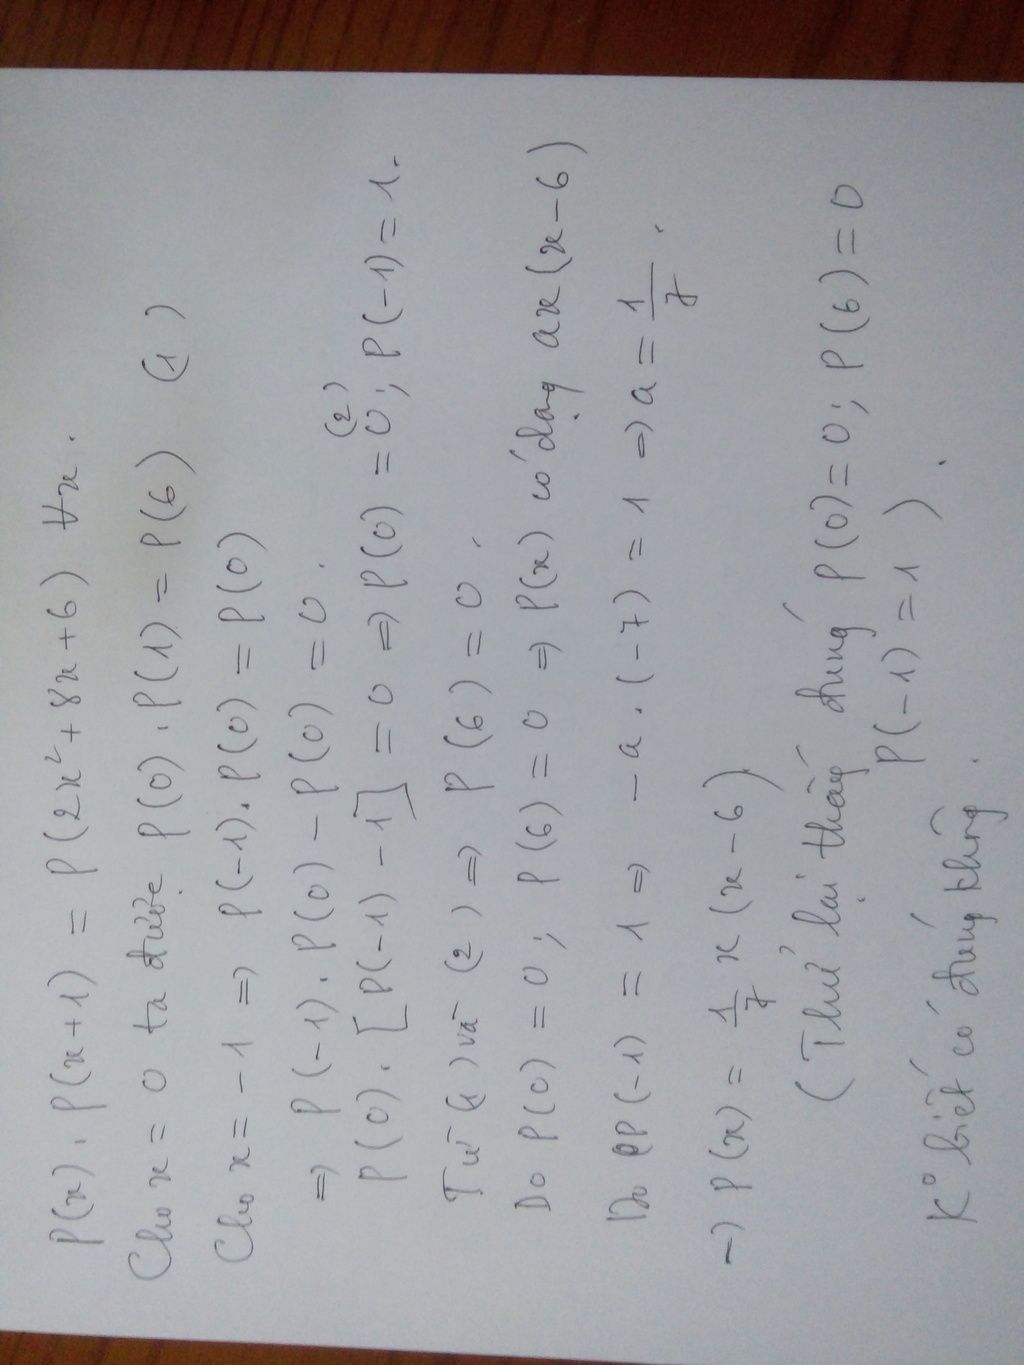 P(x).P(x+1) = P(2x²+8x+6) ∀x.
Cho x = 0 ta được P(0).P(1) = P(6) (1)
Cho x = -1 ⇒ P(-1).P(0) = P(0)
⇒ P(-1).P(0) - P(0) = 0.
P(0).[P(-1) - 1] = 0 ⇒ P(0) = 0; (2) P(-1) = 1.
Từ (1) và (2) ⇒ P(6) = 0.
Do P(0) = 0; P(6) = 0 ⇒ P(x) có dạng ax(x-6)
Do P(-1) = 1 ⇒ -a.(-7) = 1 ⇒ a = 1/7.
→ P(x) = 1/7 x(x-6)
(Thử lại thấy đúng P(0) = 0; P(6) = 0
P(-1) = 1).
K° biết có đúng không.